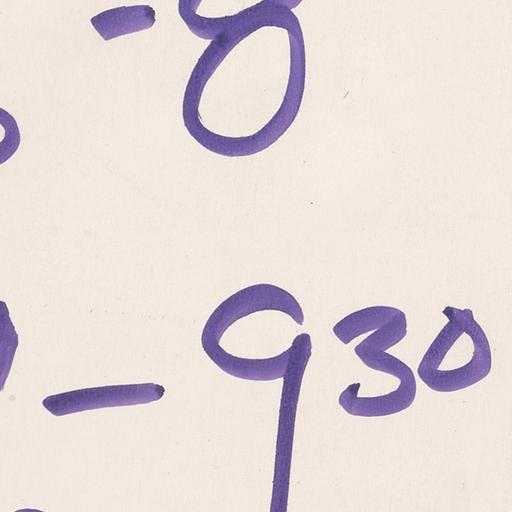 - 8
- 930